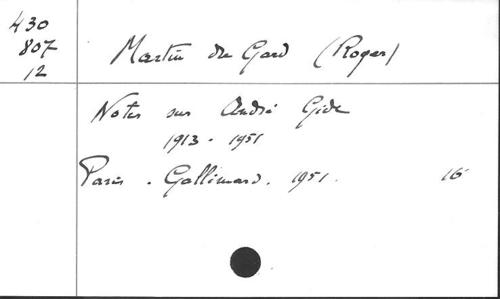 430
807
12
Martin du Gard (Roger)
Notes sur André Gide
1913 - 1951
Paris. Gallimard. 1951. 16